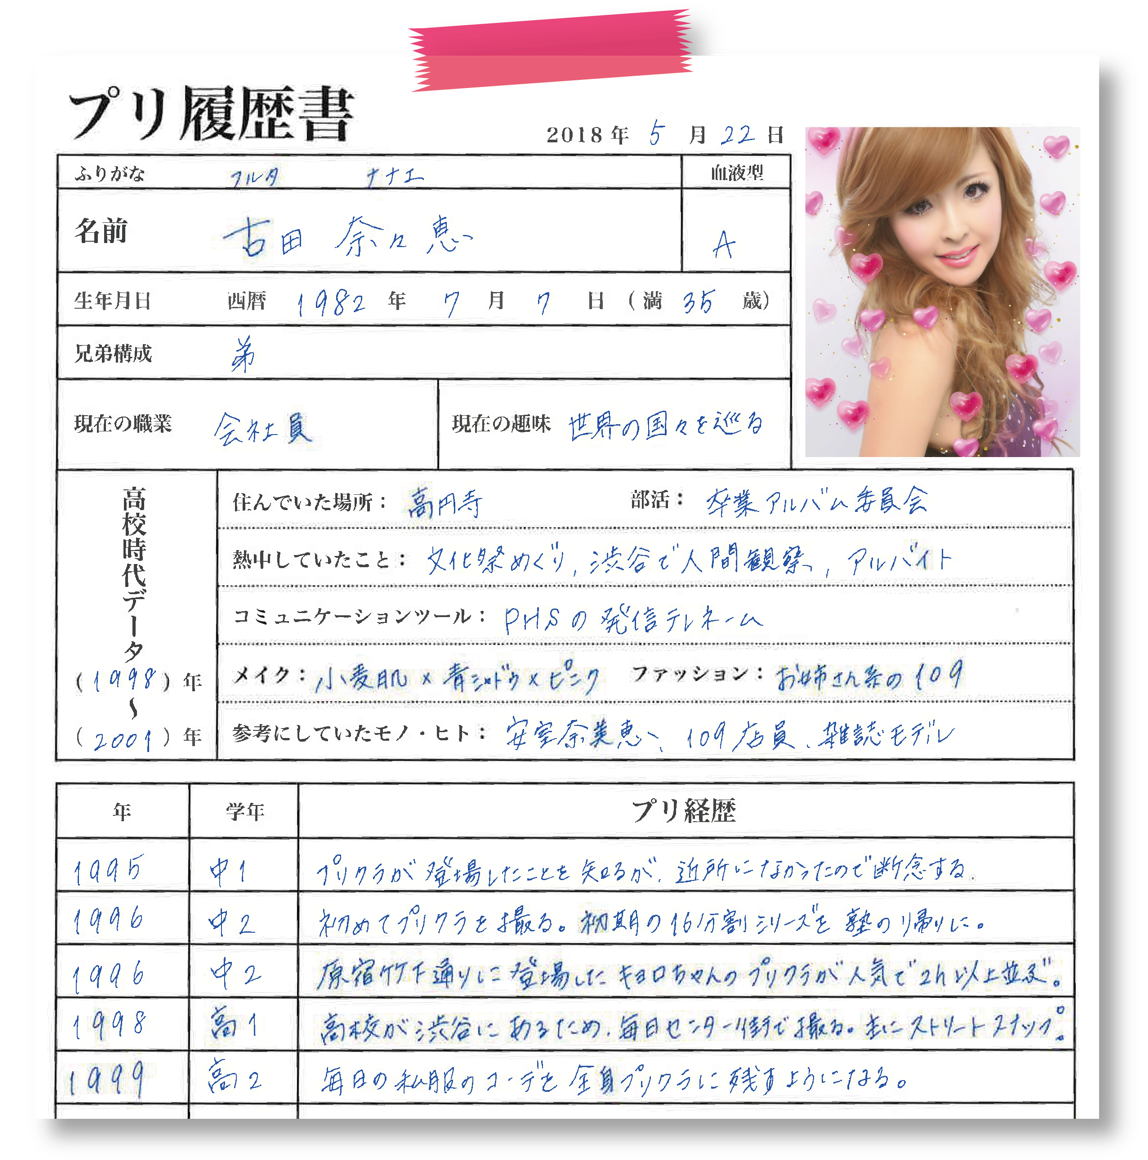 プリ履歴書
2018年 5 月 22 日
ふりがな フルタ ナナエ 血液型
名前 古田 奈々恵 A
生年月日 西暦 1982 年 7 月 7 日 (満 35 歳)
兄弟構成 弟
現在の職業 会社員 現在の趣味 世界の国々を巡る
高校時代データ (1998) 年 〜 (2001) 年
住んでいた場所： 高円寺 部活： 卒業アルバム委員会
熱中していたこと： 文化祭めぐり, 渋谷で人間観察, アルバイト
コミュニケーションツール： PHSの発信テレネーム
メイク： 小麦肌×青シャドウ×ピンク ファッション： お姉さん系の109
参考にしていたモノ・ヒト： 安室奈美恵、109店員、雑誌モデル
年 学年 プリ経歴
1995 中1 プリクラが登場したことを知るが、近所になかったので断念する.
1996 中2 初めてプリクラを撮る。初期の16分割シリーズを塾の帰りに。
1996 中2 原宿竹下通りに登場したキョロちゃんのプリクラが人気で2h以上並ぶ。
1998 高1 高校が渋谷にあるため、毎日センター街で撮る。主にストリートスナップ。
1999 高2 毎日の私服のコーデを全身プリクラに残すようになる。